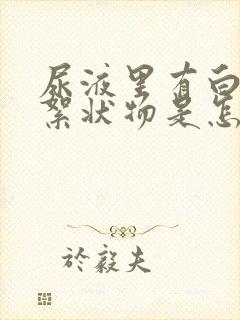 尿液里有白
絮状物是怎
於毅夫